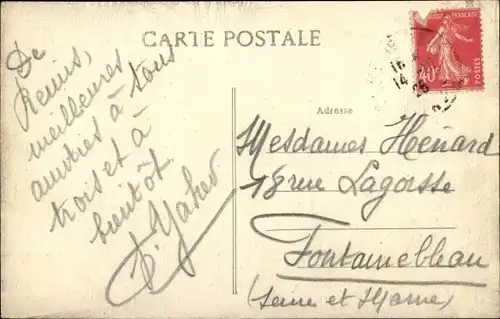 CARTE POSTALE
De
Reims,
meilleures
amitiés à tous
trois et à
bientôt
Adresse
Mesdames Hénard
18 rue Lagorsse
Fontainebleau
(Seine et Marne)
FRANÇAISE
40
16
14